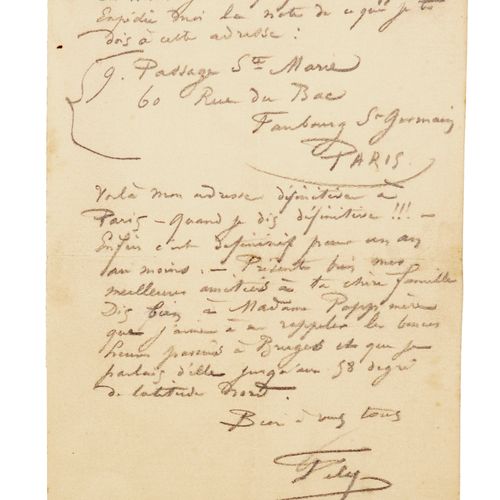 Expédie moi la note de ce que je te
dois à cette adresse :
9. Passage Ste Marie
60 Rue du Bac
Faubourg St Germain
PARIS.
Voilà mon adresse définitive à
Paris – quand je dis définitive !!! –
Enfin c'est définitif pour un an
au moins. – Présente bien mes
meilleures amitiés à ta chère famille
Dis bien à Madame Popp mère
que j'aime à me rappeler les bonnes
heures passées à Bruges et que je
parlais d'elle jusqu'au 58 degré
de latitude Nord.
Bien à vous tous
Fély